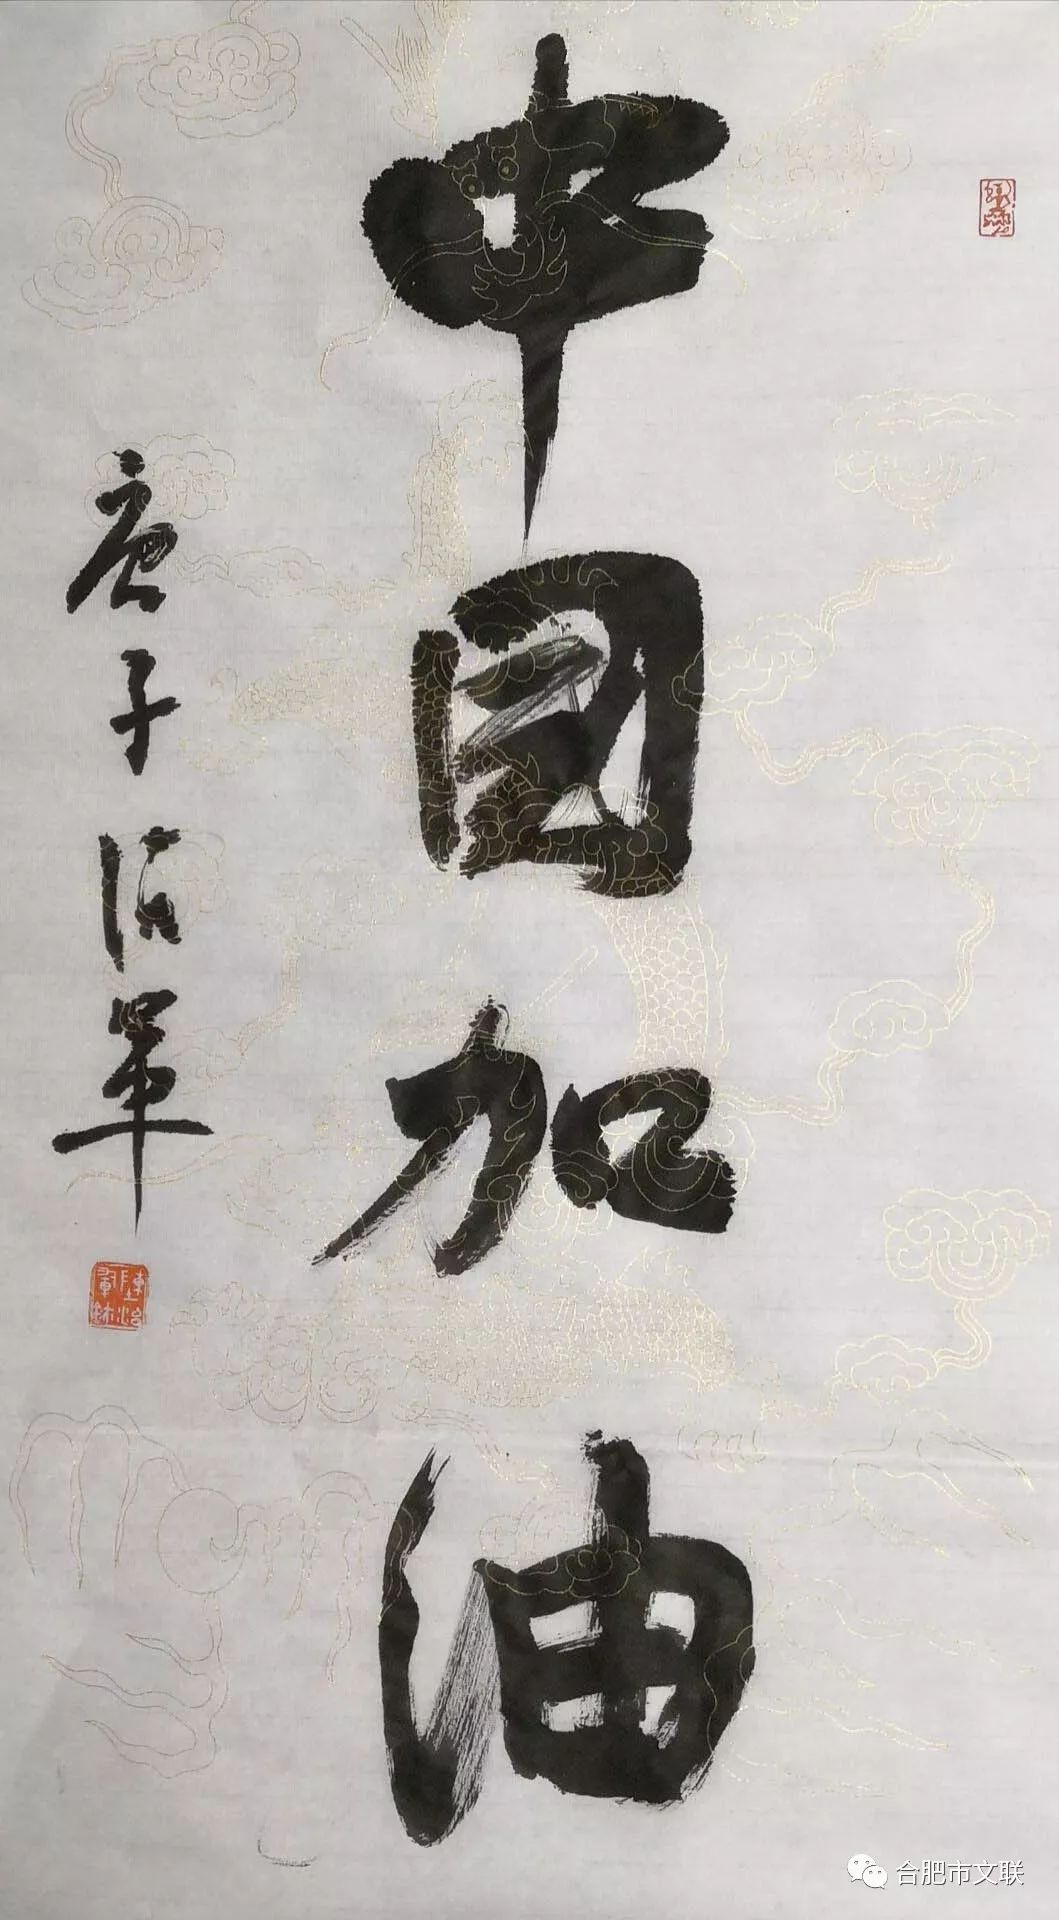 中国加油
庚子治军
合肥市文联